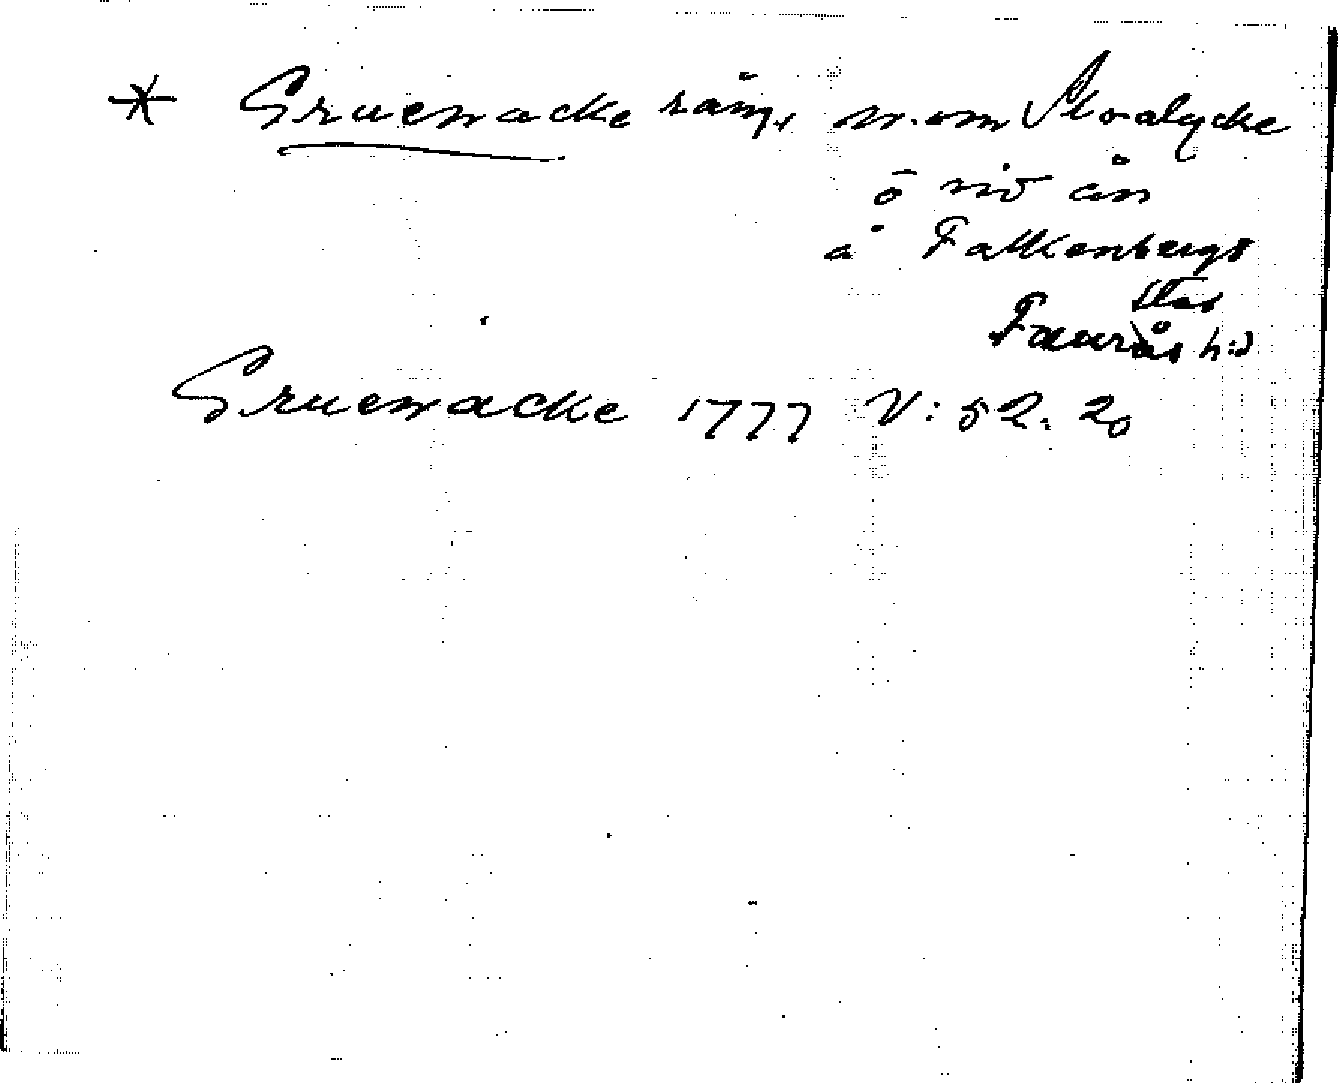 * Gruenacke räng. n.om Skoalycke
ö vid ån
å Falkenbergs
stad
Faurås hd
Gruenacke 1777 V: 52. 20